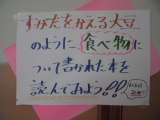 すがたをかえる大豆
のように、食べ物に
ついて書かれた本を
読んでみよう!!